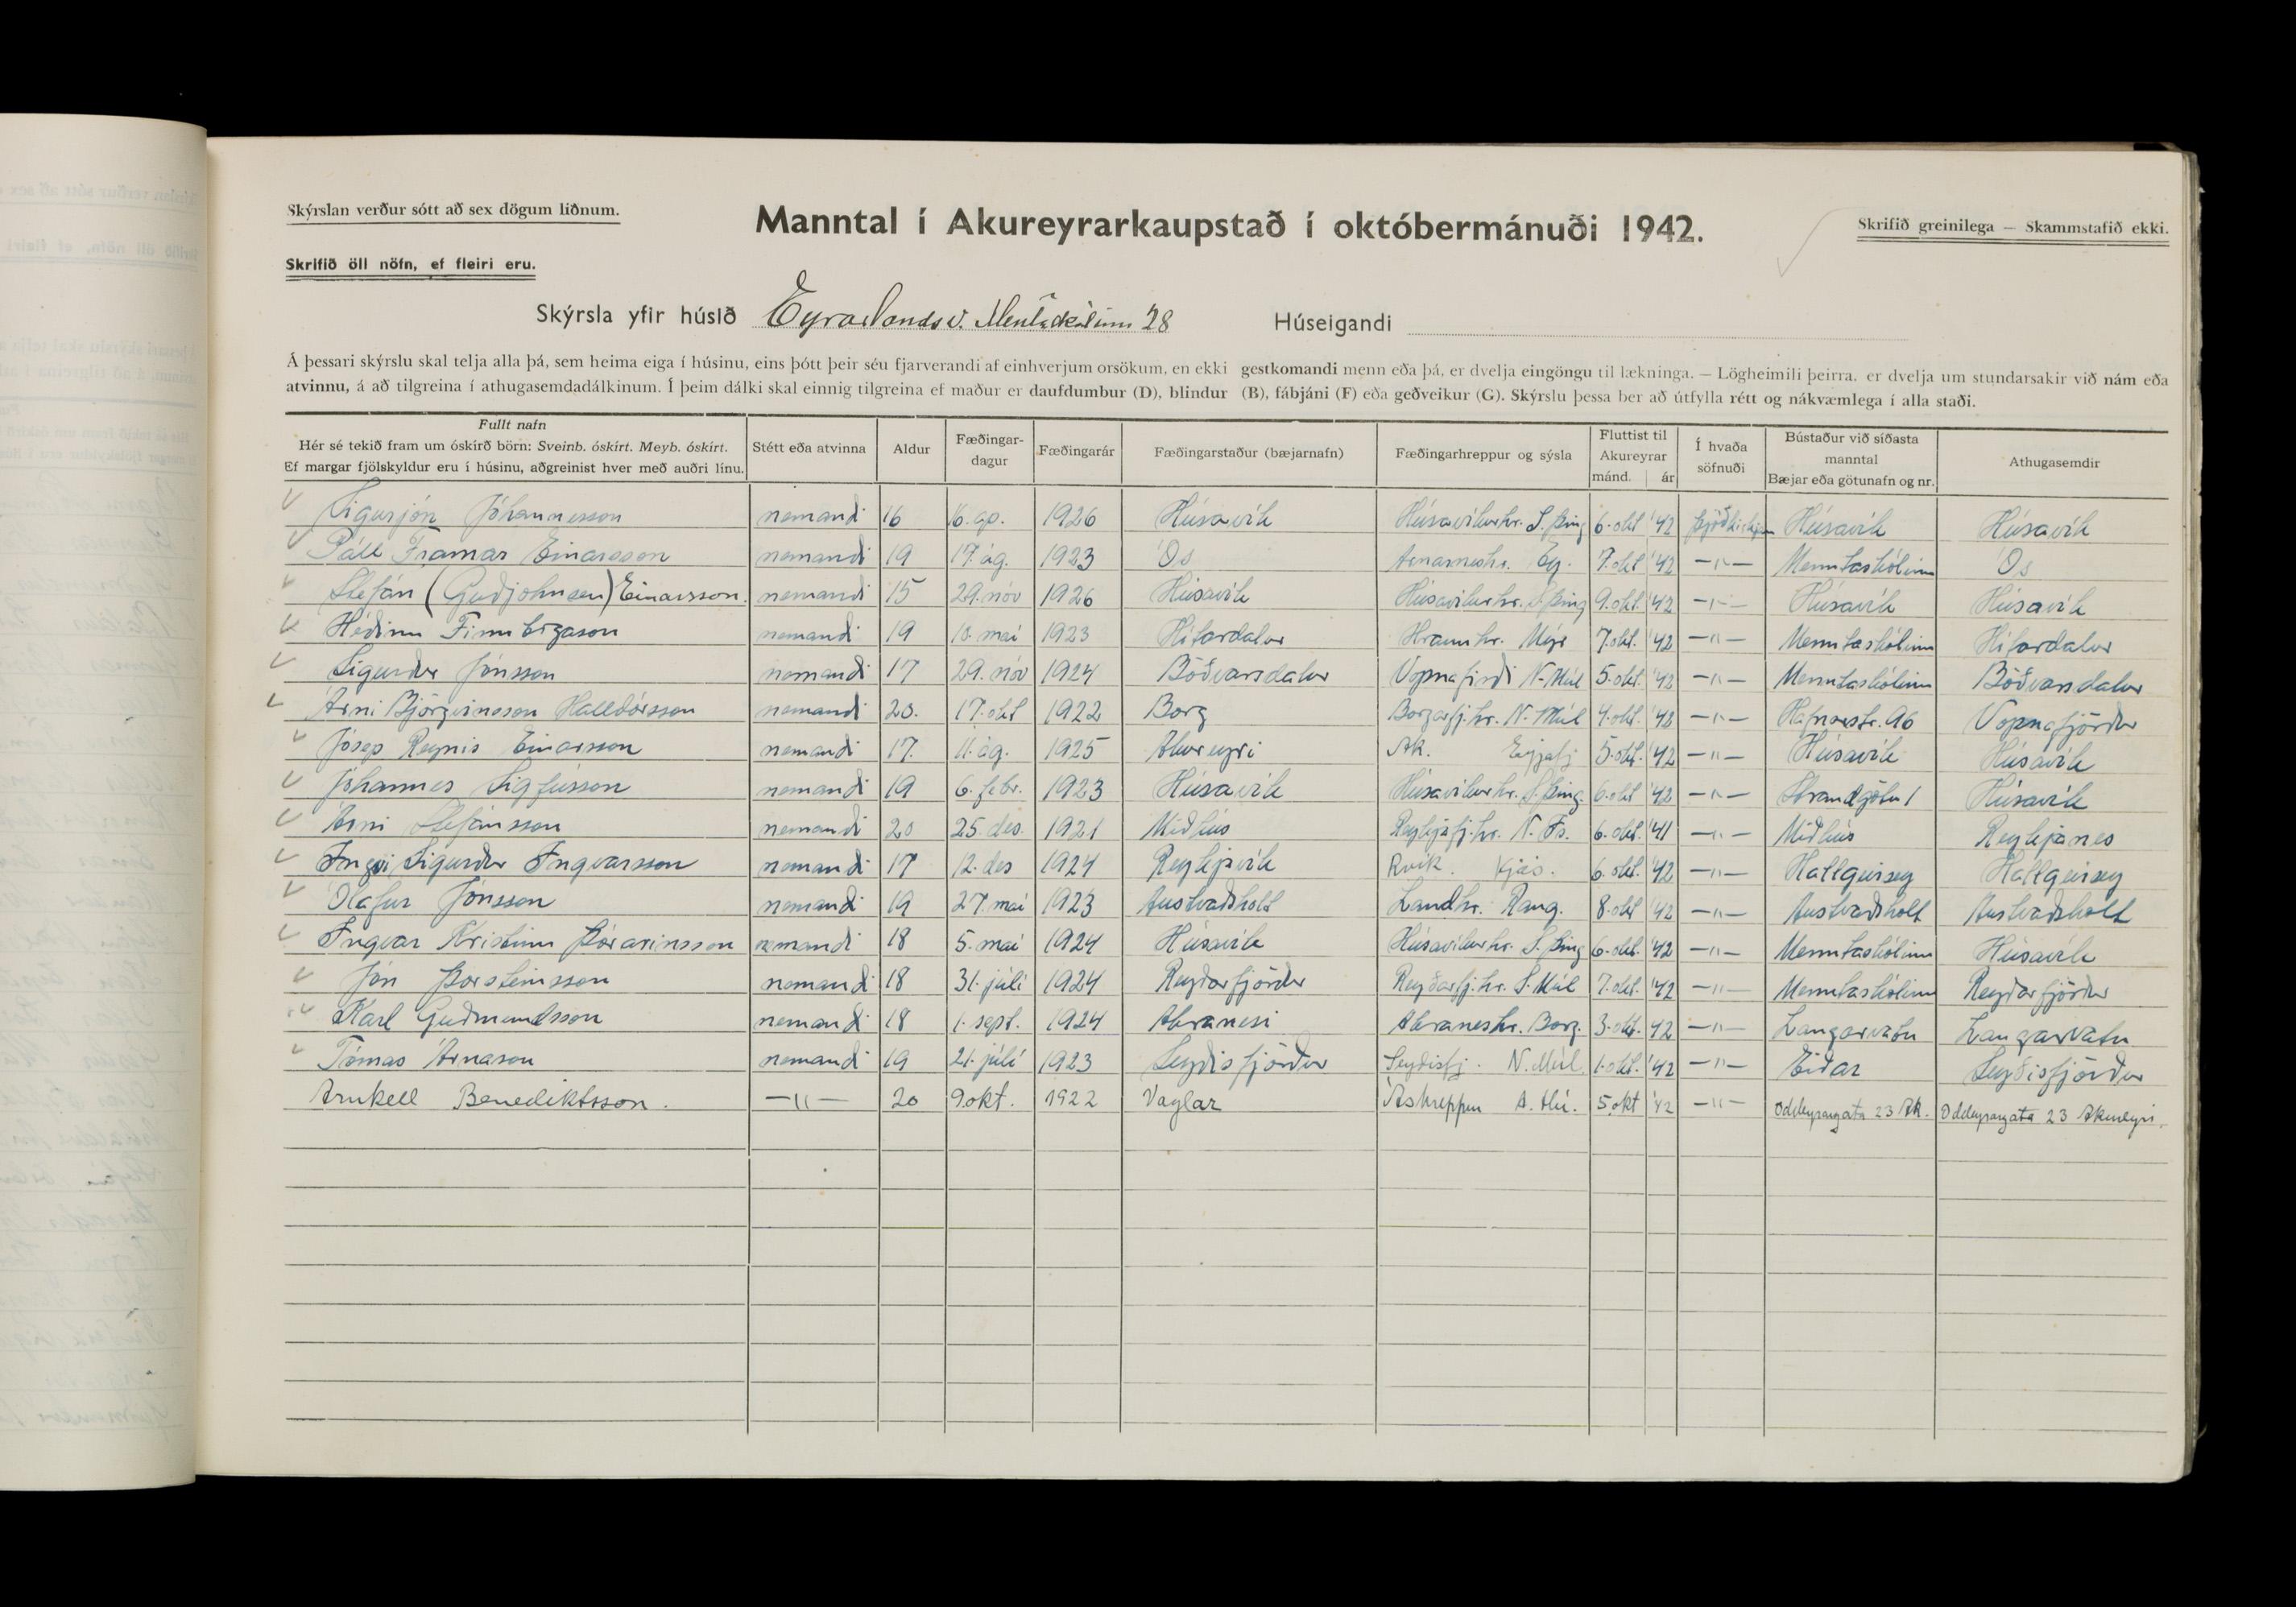 Skýrslan verður sótt að sex dögum liðnum.
Manntal í Akureyrarkaupstað í októbermánuði 1942.
Skrifið greinilega — Skammstafið ekki.
Skrifið öll nöfn, ef fleiri eru.
Skýrsla yfir húsið Eyrarlandsv. 28 Húseigandi
Á þessari skýrslu skal telja alla þá, sem heima eiga í húsinu, eins þótt þeir séu fjarverandi af einhverjum orsökum, en ekki gestkomandi menn eða þá, er dvelja eingöngu til lækninga. — Lögheimili þeirra, er dvelja um stundarsakir við nám eða
atvinnu, á að tilgreina í athugasemdadálkinum. Í þeim dálki skal einnig tilgreina ef maður er daufdumbur (D), blindur (B), fábjáni (F) eða geðveikur (G). Skýrslu þessa ber að útfylla rétt og nákvæmlega í alla staði.
Fullt nafn
Hér sé tekið fram um óskírð börn: Sveinb. óskírt. Meyb. óskírt.
Ef margar fjölskyldur eru í húsinu, aðgreinist hver með auðri línu.
Stétt eða atvinna
Aldur
Fæðingar-
dagur
Fæðingarár
Fæðingarstaður (bæjarnafn)
Fæðingarhreppur og sýsla
Fluttist til
Akureyrar
mánd. ár
Í hvaða
söfnuði
Bústaður við síðasta
manntal
Bæjar eða götunafn og nr.
Athugasemdir
Sigurjón Jóhannesson nemandi 16 16. ap. 1926 Húsavík Húsavíkurhr. S. Þing 6. okt '42 Húsavík Húsavík
Páll Framar Einarsson nemandi 19 17. ág. 1923 Ós Arnarneshr. Ey. 7. okt '42 —"— Menntaskólinn Ós
Stefán (Guðjohnsen) Einarsson. nemandi 15 29. nóv 1926 Húsavík Húsavíkurhr. S. Þing 9. okt. '42 —"— Húsavík Húsavík
Héðinn Finnbogason nemandi 19 10. maí 1923 Hítardalur Hraunhr. Mýr 7. okt. '42 —"— Menntaskólinn Hítardalur
Sigurður Jónsson nemandi 17 29. nóv 1924 Böðvarsdalur Vopnafirði N-Múl 5. okt. '42 —"— Menntaskólinn Böðvarsdalur
Árni Björgvinsson Halldórsson nemandi 20. 17. okt 1922 Borg Borgarfj.hr. N. Múl 4. okt. —"— Hafnarstr. 96 Vopnafjörður
Jósep Reynis Einarsson nemandi 17. 11. ág. 1925 Akureyri Ak. Eyjafj 5. okt. '42 —"— Húsavík Húsavík
Jóhannes Sigfússon nemandi 19 6. febr. 1923 Húsavík Húsavíkurhr. S. Þing. 6. okt '42 —"— Strandgötu 1 Húsavík
Árni Stefánsson nemandi 20 25. des. 1921 Miðhús Reykjafj.hr. N. Ís. 6. okt. '41 —"— Miðhús Reykjanes
Ingvi Sigurður Ingvarsson nemandi 17 12. des 1924 Reykjavík Rvík. Kjós. 6. okt. '42 —"— Hallgeirsey Hallgeirsey
Ólafur Jónsson nemandi 19 27. maí 1923 Austvaðsholt Landhr. Rang. 8. okt '42 —"— Austvaðsholt Austvaðsholt
Ingvar Kristinn Þórarinsson nemandi 18 5. maí 1924 Húsavík Húsavíkurhr. S. Þing 6. okt. '42 —"— Menntaskólinn Húsavík
Jón Þorsteinsson nemandi 18 31. júlí 1924 Reyðarfjörður Reyðarfj.hr. S. Múl 7. okt. '42 —"— Menntaskólinn Reyðarfjörður
Karl Guðmundsson nemandi 18 1. sept. 1924 Akranesi Akraneshr. Borg. 3. okt. '42 —"— Laugarvatn Laugarvatn
Tómas Árnason nemandi 19 21. júlí 1923 Seyðisfjörður Seyðisfj. N. Múl. 1. okt. '42 —"— Eiðar Seyðisfjörður
Arnkell Benediktsson. —"— 20 9. okt. 1922 Vaglar Áshreppur A. Hú. 5. okt '42 —"— Oddeyrargata 23 Ak. Oddeyrargata 23 Akureyri.